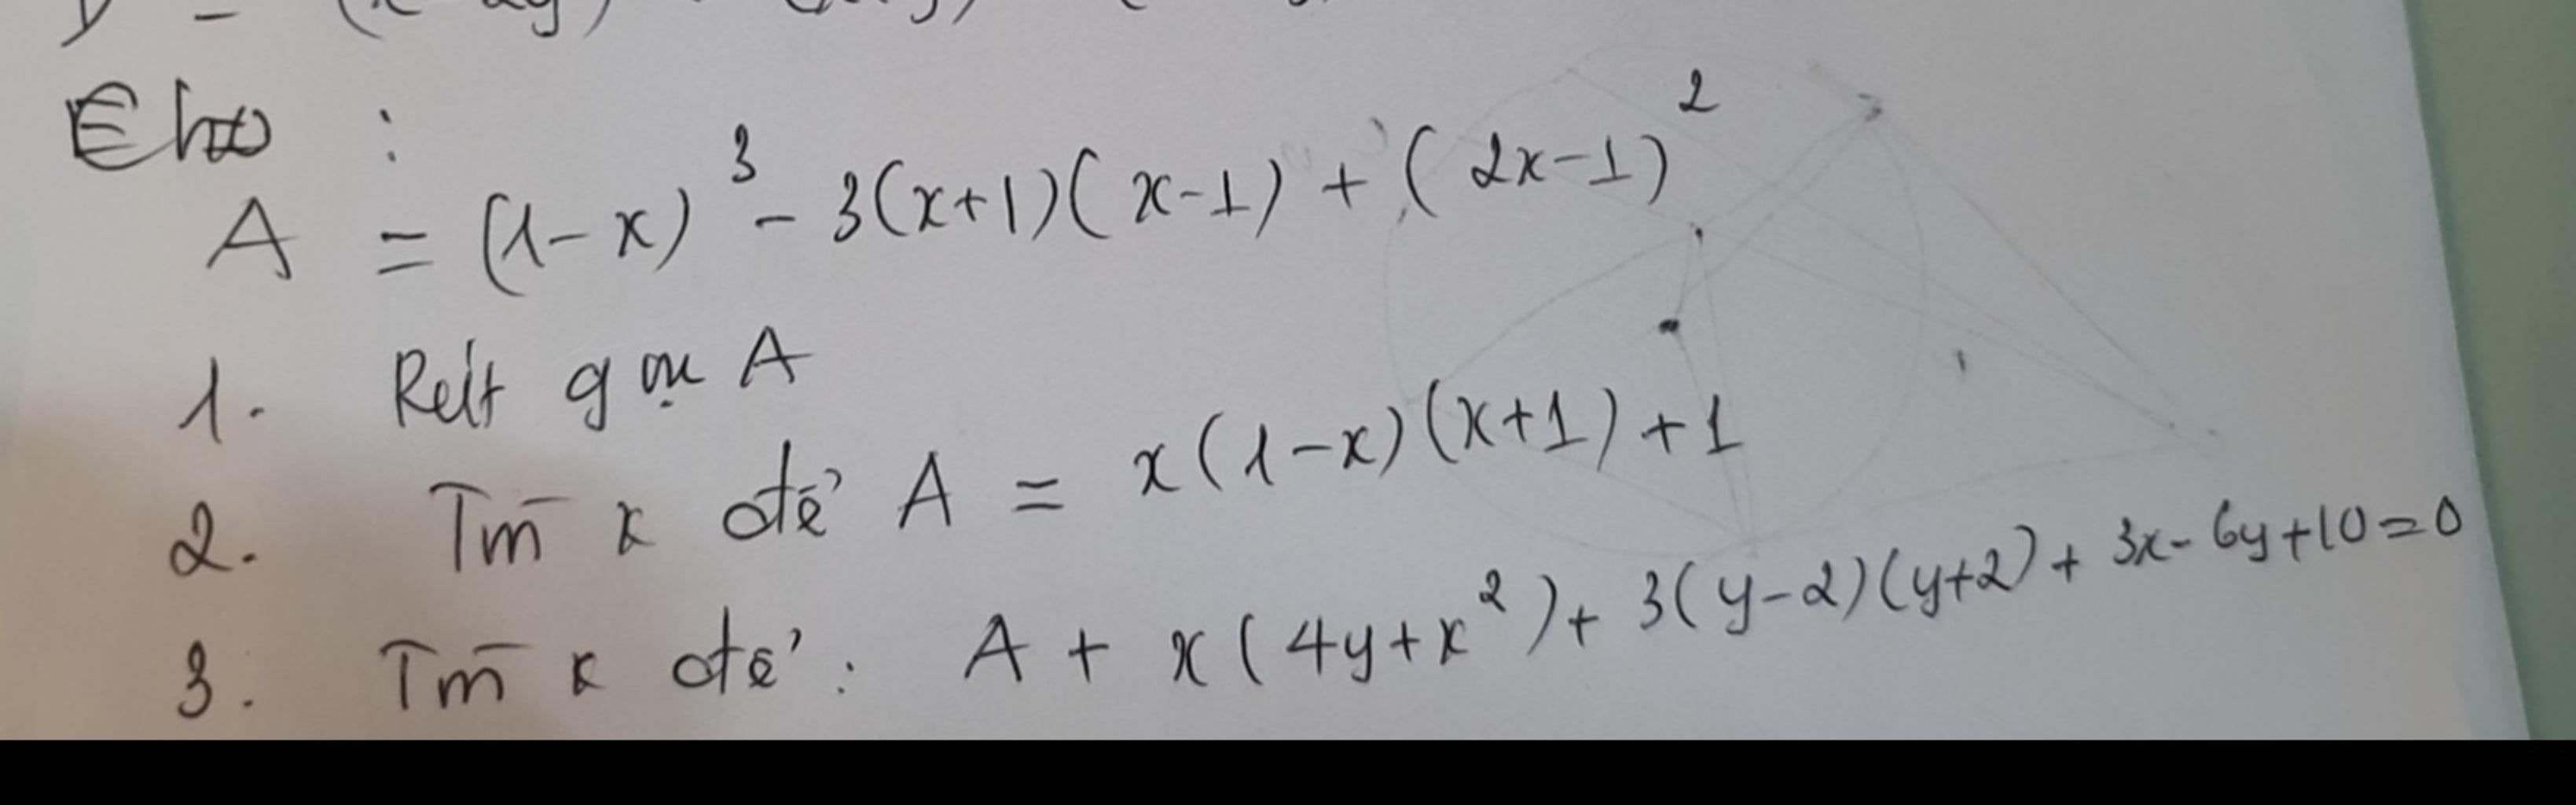 Cho :
A = (1-x)³ - 3(x+1)(x-1) + (2x-1)²
1. Rút gọn A
2. Tìm x để A = x(1-x)(x+1)+1
3. Tìm x để : A + x(4y+x²)+ 3(y-2)(y+2)+ 3x- 6y+10=0